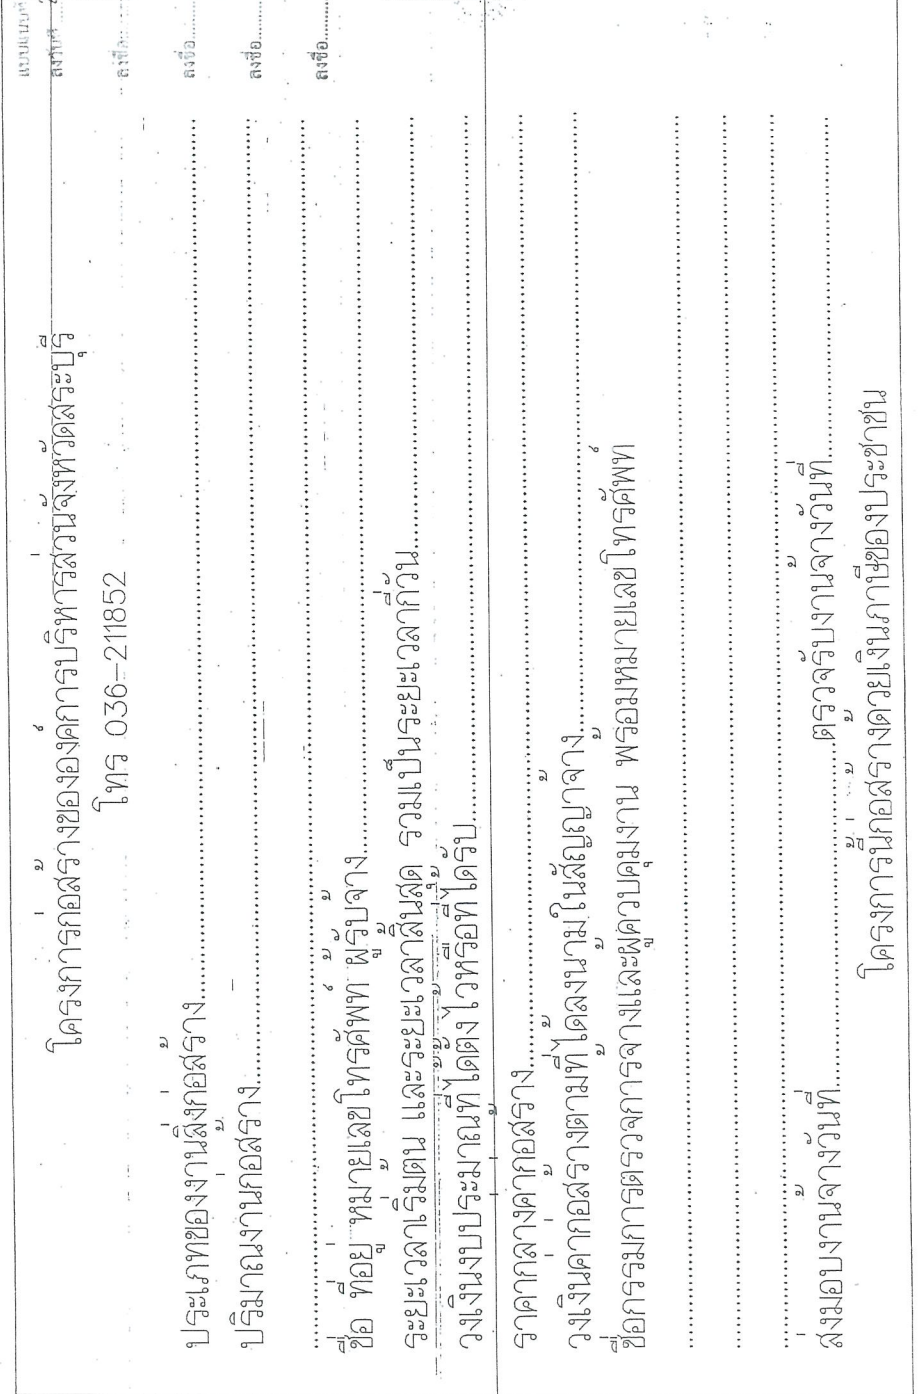 โครงการก่อสร้างขององค์การบริหารส่วนจังหวัดสระบุรี
โทร 036-211852
ประเภทของงานสิ่งก่อสร้าง....................
ปริมาณงานก่อสร้าง....................
....................
ชื่อ ที่อยู่ หมายเลขโทรศัพท์ ผู้รับจ้าง....................
ระยะเวลาเริ่มต้น และระยะเวลาสิ้นสุด รวมเป็นระยะเวลากี่วัน....................
วงเงินงบประมาณที่ได้ตั้งไว้หรือที่ได้รับ....................
ราคากลางค่าก่อสร้าง....................
วงเงินค่าก่อสร้างตามที่ได้ลงนามในสัญญาจ้าง....................
ชื่อกรรมการตรวจการจ้างและผู้ควบคุมงาน พร้อมหมายเลขโทรศัพท์
....................
....................
....................
ส่งมอบงานจ้างวันที่....................ตรวจรับงานจ้างวันที่....................
โครงการนี้ก่อสร้างด้วยเงินภาษีของประชาชน
ลงชื่อ..........
ลงชื่อ..........
ลงชื่อ..........
ลงชื่อ..........